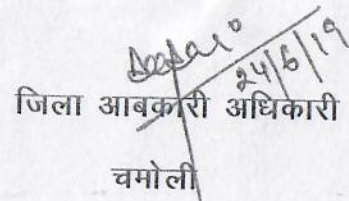 24/6/19
जिला आबकारी अधिकारी
चमोली